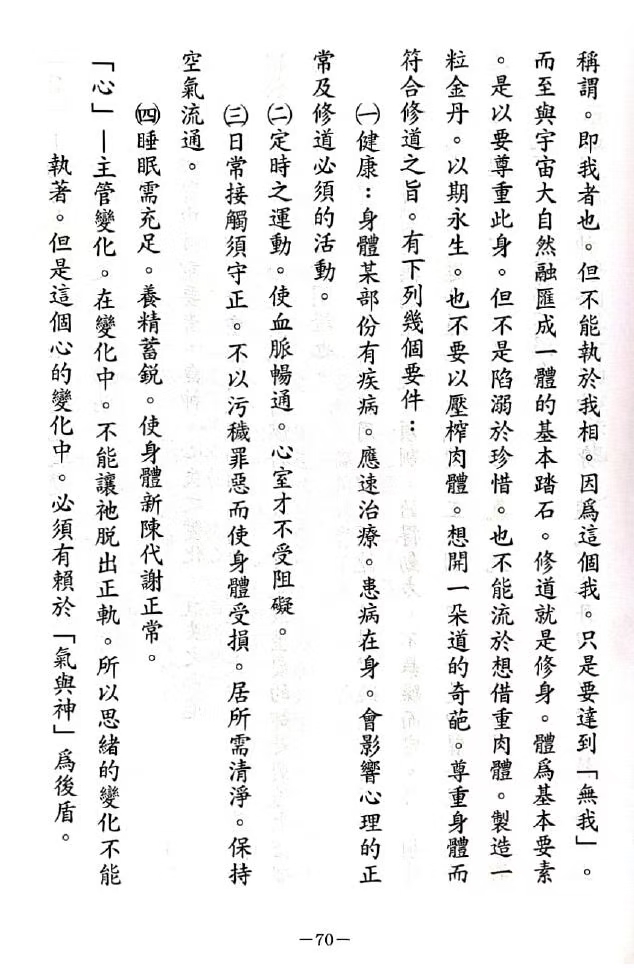 稱謂。即我者也。但不能執於我相。因爲這個我。只是要達到「無我」。
而至與宇宙大自然融匯成一體的基本踏石。修道就是修身。體爲基本要素
。是以要尊重此身。但不是陷溺於珍惜。也不能流於想借重肉體。製造一
粒金丹。以期永生。也不要以壓榨肉體。想開一朵道的奇葩。尊重身體而
符合修道之旨。有下列幾個要件：
㈠健康：身體某部份有疾病。應速治療。患病在身。會影響心理的正
常及修道必須的活動。
㈡定時之運動。使血脈暢通。心室才不受阻礙。
㈢日常接觸須守正。不以污穢罪惡而使身體受損。居所需清淨。保持
空氣流通。
㈣睡眠需充足。養精蓄銳。使身體新陳代謝正常。
「心」—主管變化。在變化中。不能讓祂脫出正軌。所以思緒的變化不能
執著。但是這個心的變化中。必須有賴於「氣與神」爲後盾。
—70—